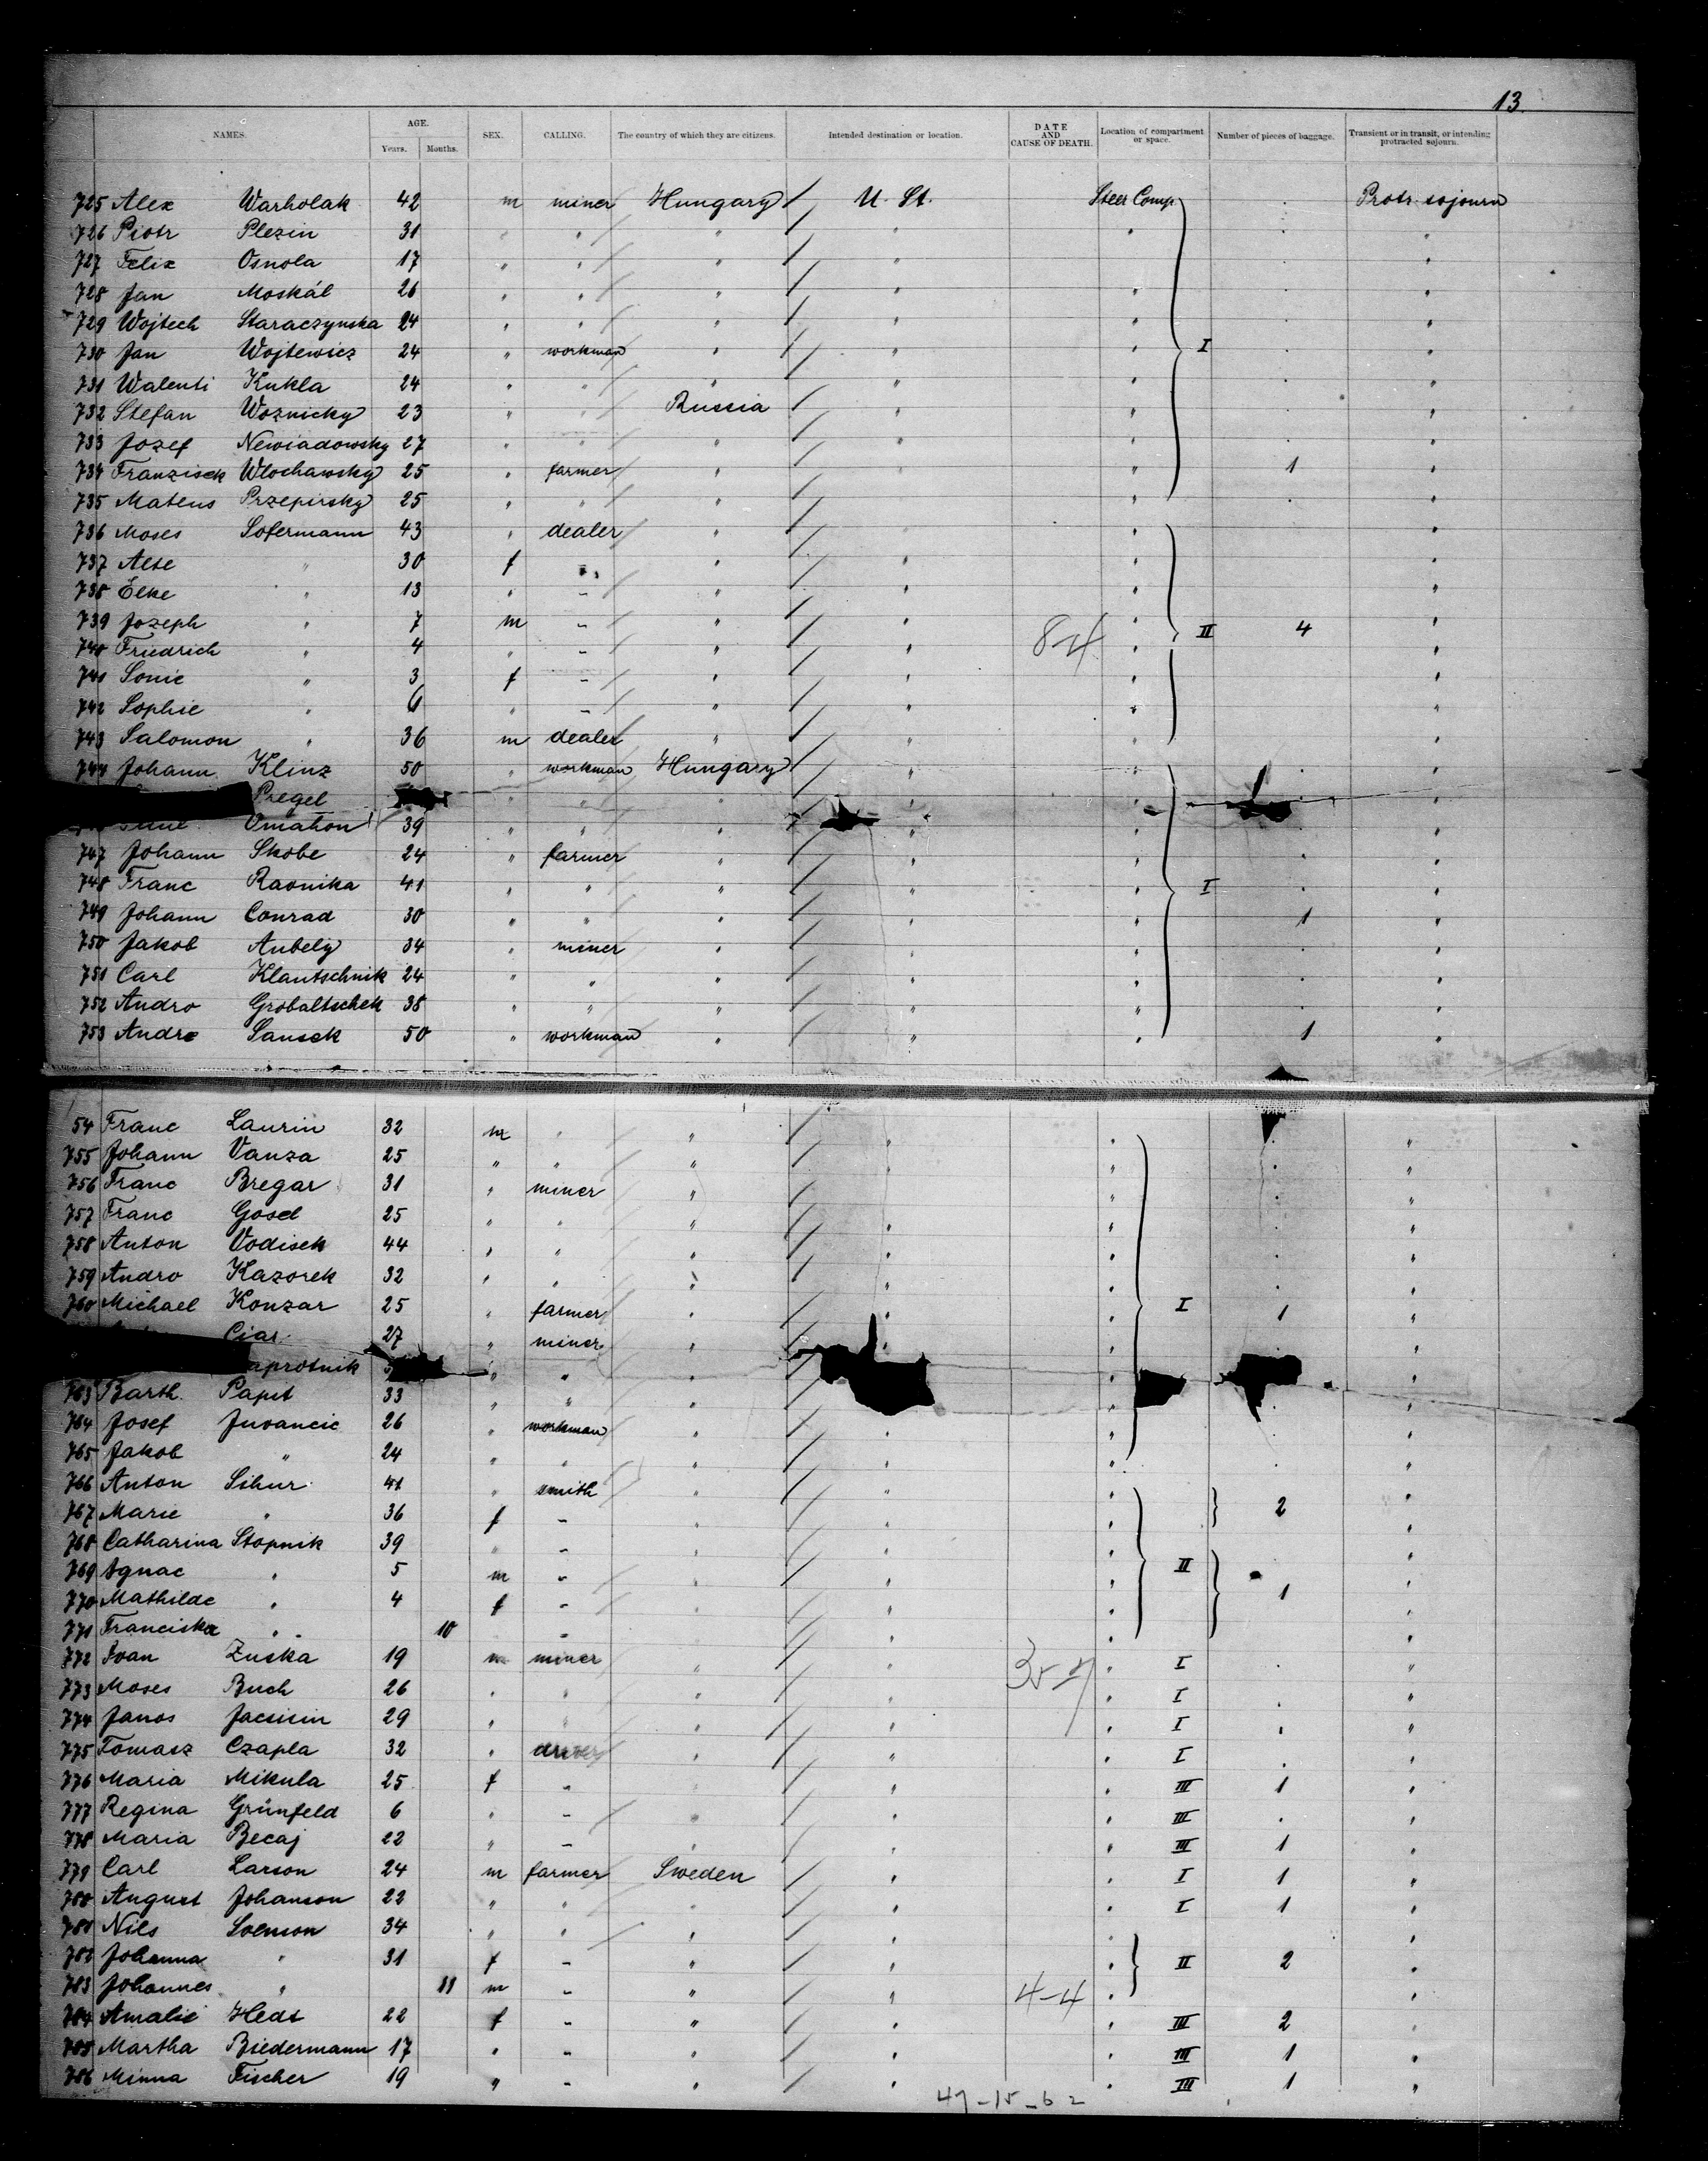 13.
NAMES. AGE. Years. Months. SEX. CALLING. The country of which they are citizens. Intended destination or location. DATE AND CAUSE OF DEATH. Location of compartment or space. Number of pieces of baggage. Transient or in transit, or intending protracted sojourn.
725 Alex Warholak 42 m miner Hungary / U. St. Steer Comp. Protr. sojourn
726 Piotr Plezin 31 " " " / " " "
727 Felix Osnola 17 " " " / " "
728 Jan Moskál 26 " " " / " " "
729 Wojtech Staraczynska 24 " " " / " " "
730 Jan Wojtewicz 24 " workman " / " " I "
731 Walenti Kukla 24 " " " / " " "
732 Stefan Woznicky 23 " " Russia / " " "
733 Jozef Newiadowsky 27 " " " / " " "
734 Franzisek Wlochawsky 25 " farmer " / " " 1 "
735 Mateus Przepirsky 25 " " " / " " "
736 Moses Sofermann 43 " dealer " / " "
737 Alte " 30 f " / " " "
738 Elke " 13 " - " / " " "
739 Jozeph " 7 m - " / " " II 4 "
740 Friedrich " 4 " - " / " 8-4 " "
741 Sonie " 3 f - " / " " "
742 Sophie " 6 " - " / " " "
743 Salomon " 36 m dealer " / " " "
744 Johann Klinz 50 " workman Hungary / " " "
Pregel " " " / " " "
Omahon 39 " " " / " " "
747 Johann Skobe 24 " farmer " / " " "
748 Franc Raonika 41 " " " / " " I "
749 Johann Conrad 30 " " " / " " 1 "
750 Jakob Aubely 34 " miner " / " " "
751 Carl Klautschnik 24 " " " / " " "
752 Andro Grobaltschek 38 " " " / " " "
753 Andre Sansek 50 " workman " / " " 1 "
54 Franc Laurin 32 m " " / " " "
755 Johann Vanza 25 " " " / " "
756 Franc Bregar 31 " miner " / " "
757 Franc Gosel 25 " " " / " " "
758 Anton Vodisek 44 " " " / " " "
759 Andro Kazorek 32 " " " / " " "
760 Michael Konzar 25 " farmer " / " " I 1 "
Ciar 27 " miner " / " " "
aprotnik " " " / " "
763 Barth. Papst 33 " " " / " "
764 Josef Juvancic 26 " workman " / " " "
765 Jakob " 24 " " " / " " "
766 Anton Sihur 41 " smith " / " " "
767 Marie " 36 f - " / " " 2 "
768 Catharina Stopnik 39 " - " / " " "
769 Ignac " 5 m - " / " " II "
770 Mathilde " 4 f - " / " " 1 "
771 Franciska " 10 " - " / " " "
772 Ivan Zuska 19 m miner " / " " I "
773 Moses Buch 26 " " " / " " I "
774 Janos Jacsisin 29 " " " / " " I "
775 Tomasz Czapla 32 " " / " " I "
776 Maria Mikula 25 f - " / " " III 1 "
777 Regina Grünfeld 6 " - " / " " III "
778 Maria Becaj 22 " - " / " " III 1 "
779 Carl Larson 24 m farmer Sweden / " " I 1 "
780 August Johanson 22 " " " / " " I 1 "
781 Nils Soenson 34 " " " / " " "
782 Johanna " 31 f - " / " " II 2 "
783 Johannes " 11 m - " / " 4-4 " "
784 Amalie Hedt 22 f - " / " " III 2 "
785 Martha Biedermann 17 " - " / " " III 1 "
786 Minna Fischer 19 " - " / " " III 1 "
47-15-62